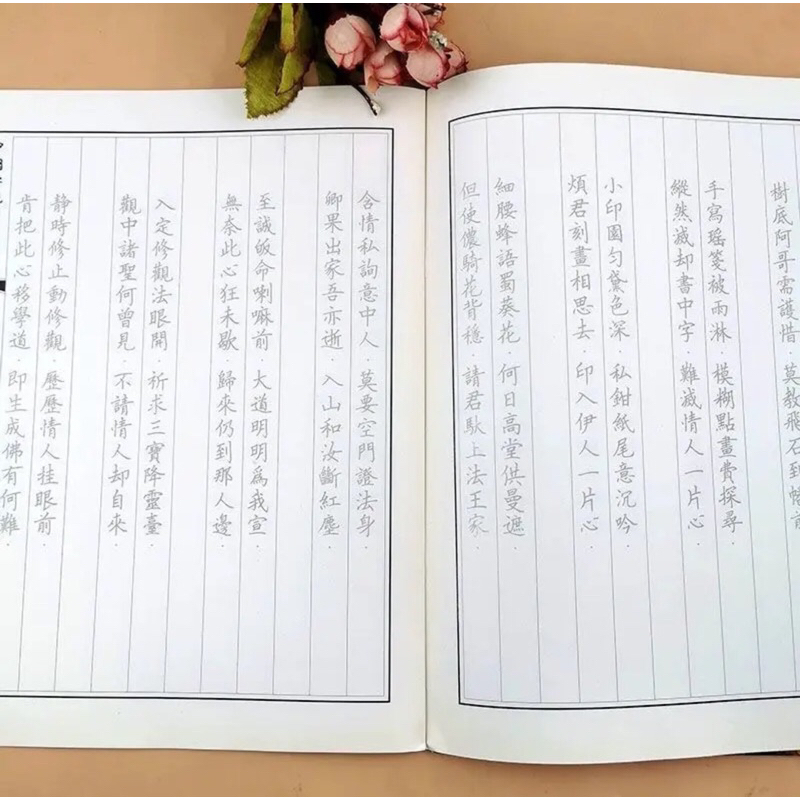 樹底阿哥需護惜．莫教飛石到前
手寫瑤箋被雨淋．模糊點畫費探尋．
縱然滅却書中字．難滅情人一片心．
小印圖勻黛色深．私鉗紙尾意沉吟．
煩君刻畫相思去．印入伊人一片心．
細腰蜂語蜀葵花．何日高堂供曼遮．
但使儂騎花背穩．請君馱上法王家．
含情私詢意中人．莫要空門證法身．
卿果出家吾亦逝．入山和汝斷紅塵．
至誠皈命喇嘛前．大道明明爲我宣．
無奈此心狂未歇．歸來仍到那人邊．
入定修觀法眼開．祈求三寶降靈臺．
觀中諸聖何曾見．不請情人却自來．
靜時修止動修觀．歷歷情人挂眼前．
肯把此心移學道．即生成佛有何難．